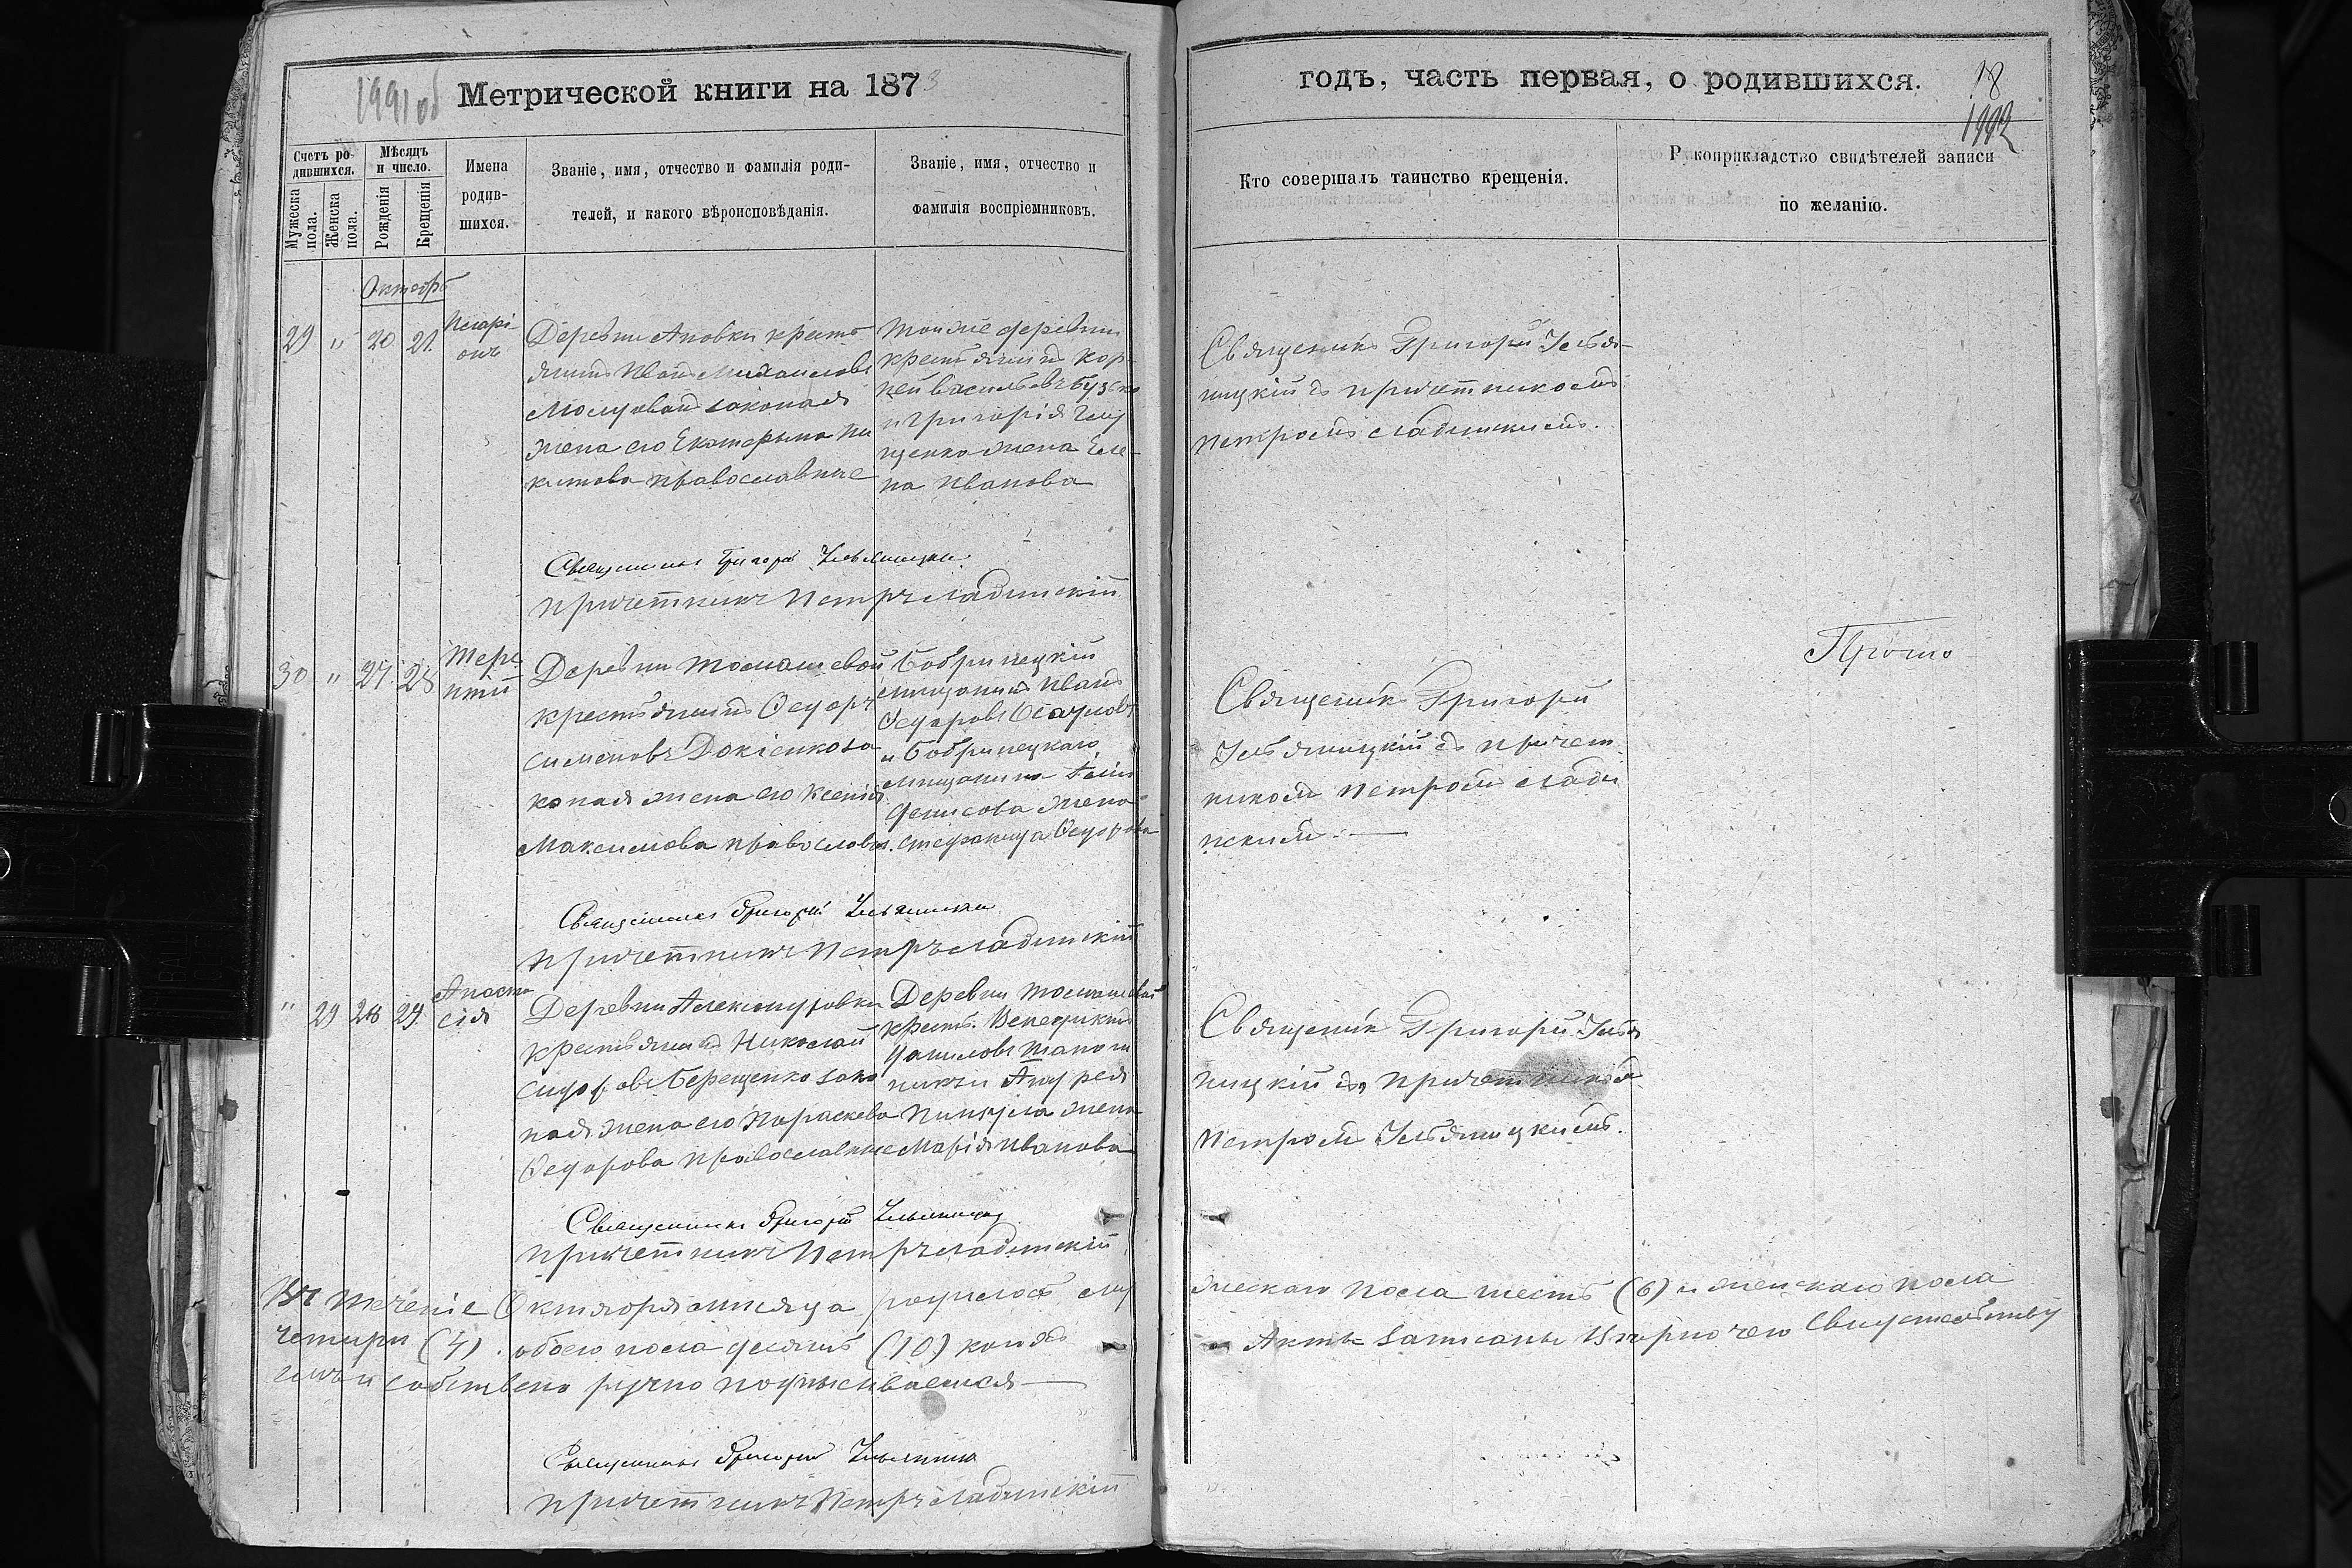 1991 об
Метрической книги на 1873
годъ, часть первая, о родившихся.
18
1992
Счетъ ро-
дившихся.
Мужеска пола.
Женска пола.
Мѣсяцъ
и число.
Рожденія
Крещенія
Имена
родив-
шихся.
Званіе, имя, отчество и фамилія роди-
телей, и какого вѣроисповѣданія.
Званіе, имя, отчество и
фамилія воспріемниковъ.
Кто совершалъ таинство крещенія.
Рукоприкладство свидѣтелей записи
по желанію.
Октябрь
29 " 20 21
Иларі-
онъ
Деревни Ановки кресть
янинъ Иванъ Михаиловъ
законая
жена его Екатерина Ни
китова православные
Тойже деревни
крестьянинъ Кор-
ней Васильевъ
и Григорія
жена Еле-
на Иванова
Священикъ Григорій Улья-
ницкій съ причетникомъ
Петромъ Сладинскимъ.
Священникъ Григорій Ульяницкій
причетникъ Петръ Сладинскій
30 " 27 28
Тере-
нтій
Деревни Томашевой
крестьянинъ Ѳедоръ
Симеоновъ зако
коная жена его Ксенія
Максимова православн.
Бобринецкій
мищанинъ Иванъ
Ѳедоровъ
и Бобринецкаго
мищанина
Денисова жена
Ѳедорова
Прочно
Священикъ Григорій
Ульяницкій съ причет
никомъ Петромъ Слади
нскимъ
Священникъ Григорій Ульяницкій
причетникъ Петръ Сладинскій
" 29 28 29
Анаста
сія
Деревни Александровки
крестьянинъ Николай
Сидоровъ Берещенко зако
ная жена его Параскева
Ѳедорова православные
Деревни Томашевой
крест. Венедиктъ
Даниловъ
Андрея
жена
Марія Иванова
Священикъ Григорій Улья
ницкій съ причетникомъ
Петромъ Ульяницкимъ.
Священникъ Григорій Ульяницкій
причетникъ Петръ Сладинскій
Въ теченіе Октября мисяца родилось му
жескаго пола шесть (6) и женскаго пола
четыри (4). обоего пола десять (10) коихъ
Акты записаны вѣрно чего свидетельству
емъ и собствено ручно подписываемся
Священникъ Григорій Ульяницкій
причетникъ Петръ Сладинскій